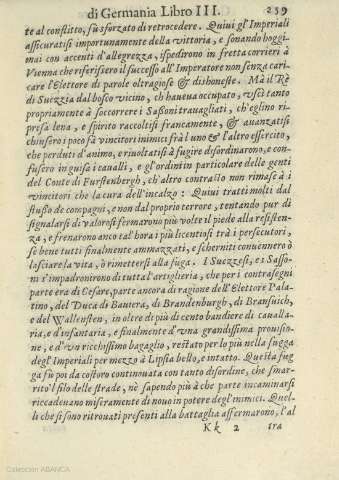 di Germania Libro III. 259
te al conflitto, fù sforzato di retrocedere. Quiui gl'Imperiali
assicuratisi importunamente della vittoria, e sonando hoggi-
mai con accenti d'allegrezza, ispedirono in fretta corrieri à
Vienna che riferissero il successo all'Imperatore non senza cari-
care l'Elettore di parole oltragiose & dishoneste. Mà il Rè
di Suezzia dal bosco vicino, ch'haueua occupato, uscì tanto
propriamente à soccorrere i Sassoni trauagliati, ch'eglino ri-
presa lena, e spirito raccoltisi francamente, & auanzatisi
chiusero i poco fà vincitori inimici frà l'uno & l'altro essercito,
che perduti d'animo, e riuoltatisi à fugire disordinarono, e con-
fusero in guisa i caualli, e gl'ordini in particolare delle genti
del Conte di Furstenbergh, ch'altro contrasto non rimase à i
vincitori che la cura dell'incalzo: Quiui tratti molti dal
flusso de compagni, e non dal proprio terrore, tentando pur di
signalarsi di valorosi fermarono più volte il piede alla resisten-
za, e frenarono ancor tal'hora i più licentiosi trà i persecutori,
se bene tutti finalmente ammazzati, e scherniti conuennero ò
lasciare la vita, ò rimettersi alla fuga. I Suezzesi, e i Sasso-
ni s'impadronirono di tutta l'artiglieria, che per i contrasegni
parte era di Cesare, parte ancora di ragione dell'Elettore Pala-
tino, del Duca di Bauiera, di Brandenburgh, di Bransuich,
e del Wallenstein, in oltre di più di cento bandiere di cauallaria,
ria, e d'infantaria, e finalmente d'vna grandissima prouisio-
ne, e d'vn ricchissimo bagaglio, restato per lo più nella fugga
degl'Imperiali per mezzo à Lipsia bello, e intatto. Questa fug-
ga fù poi da costoro continouata con tanto disordine, che smar-
rito'l filo delle strade, nè sapendo più à che parte incaminarsi
riccadeuano miseramente di nouo in potere degl'inimici. Quel-
li che si sono ritrouati presenti alla battaglia affermarono, l'al
K k 2 tra
Colección ABANCA